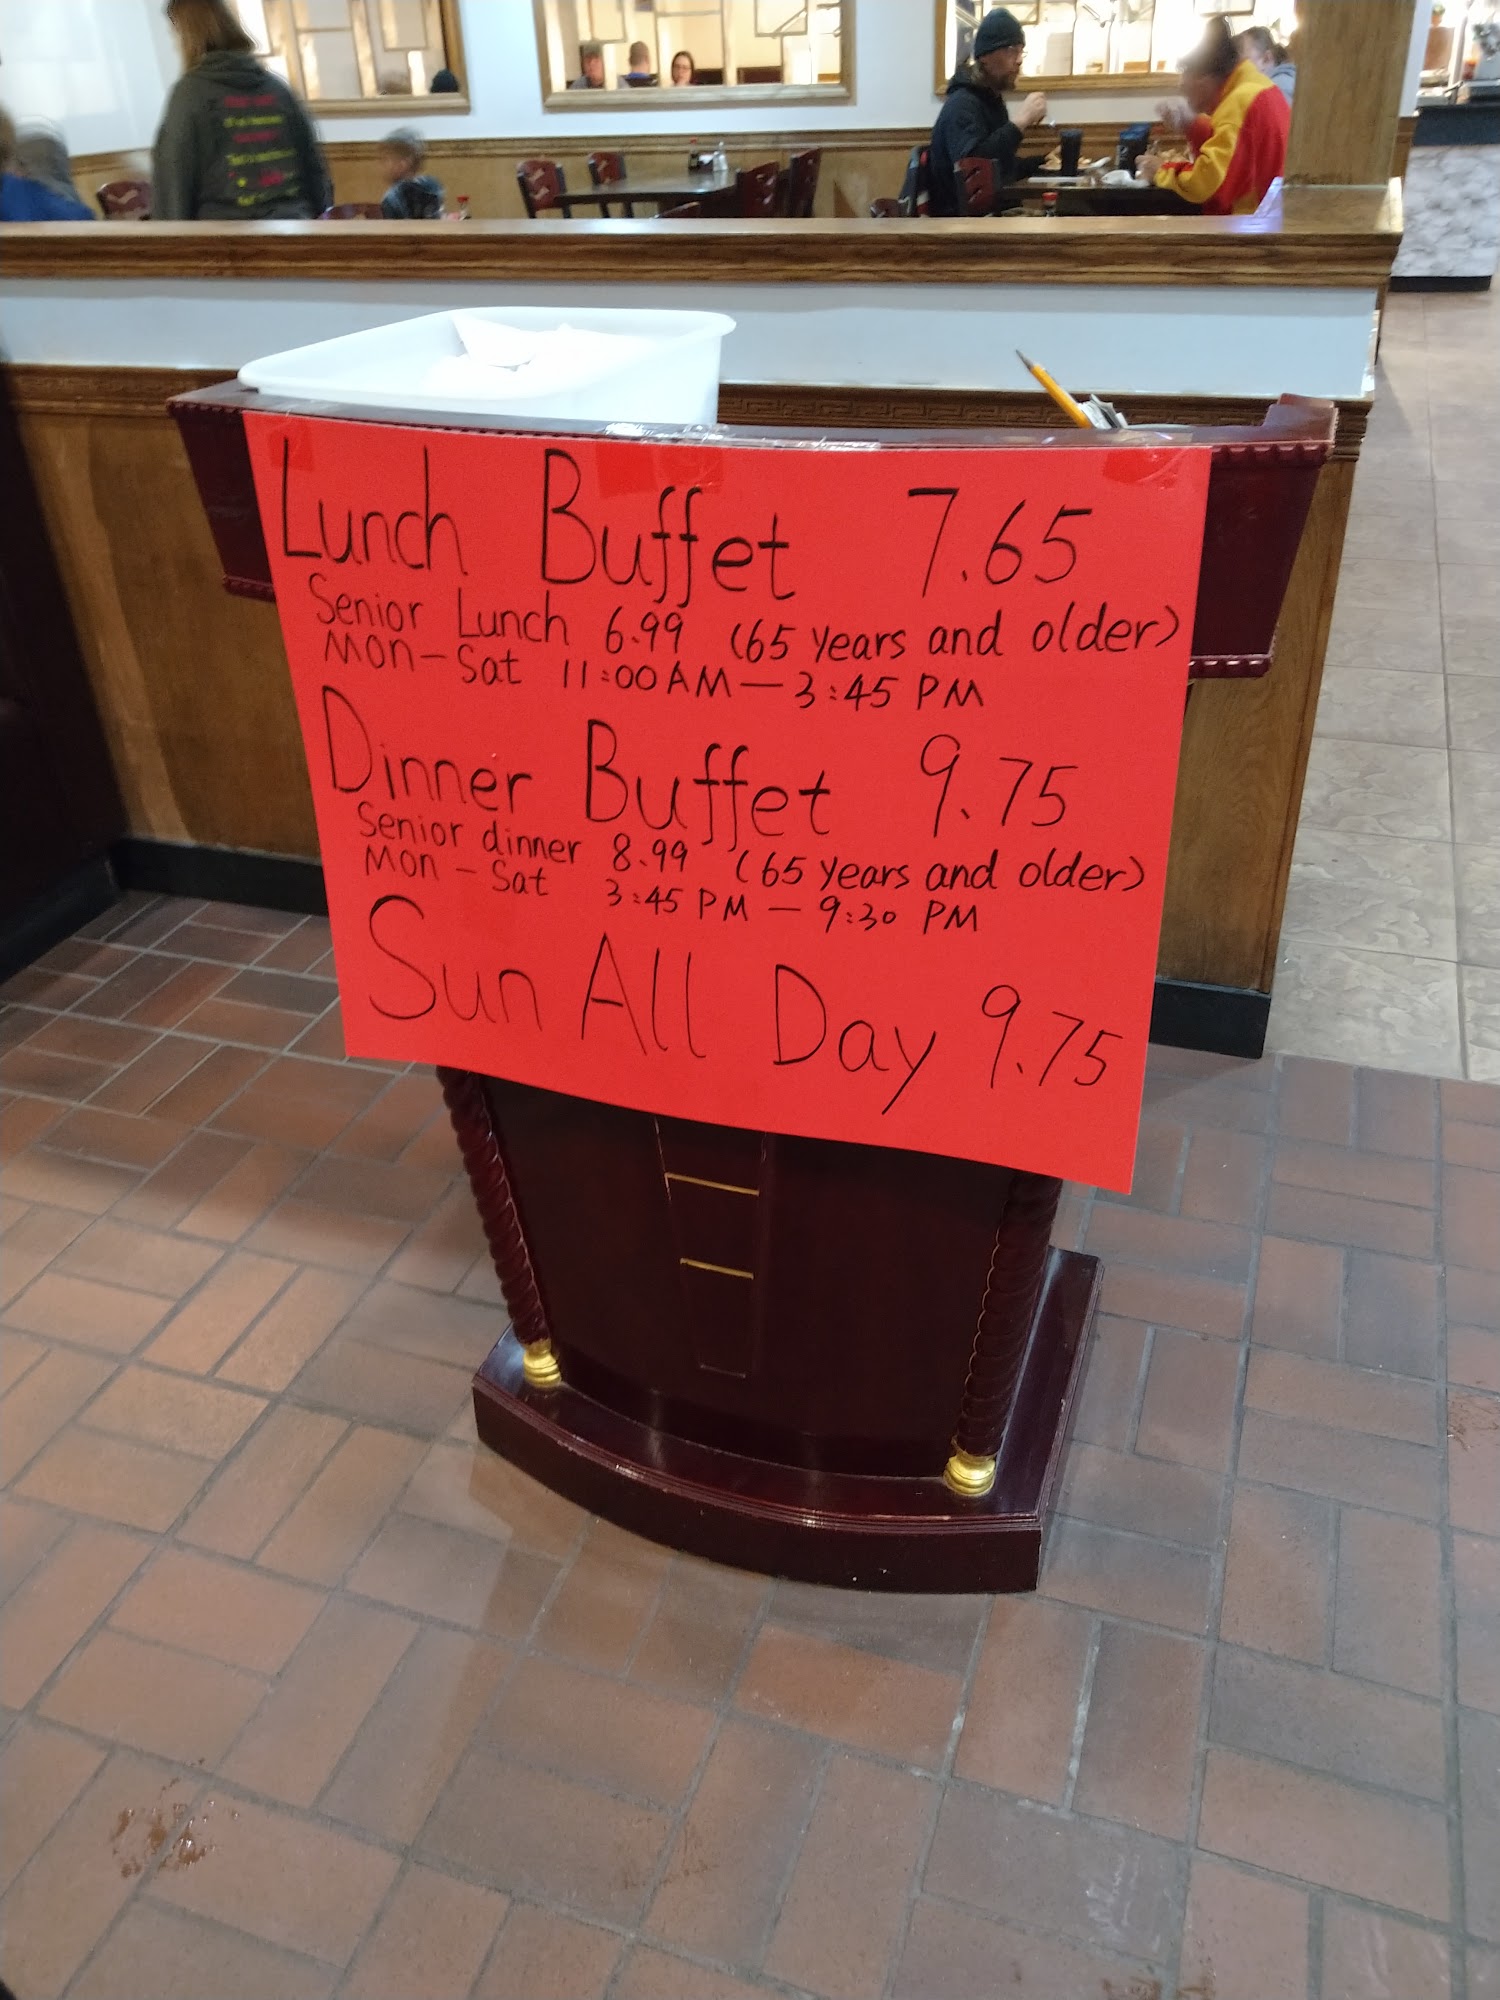 Lunch Buffet 7.65
Senior Lunch 6.99 (65 years and older)
Mon-Sat 11:00AM-3:45 PM
Dinner Buffet 9.75
Senior dinner 8.99 (65 years and older)
Mon-Sat 3:45 PM - 9:30 PM
Sun All Day 9.75